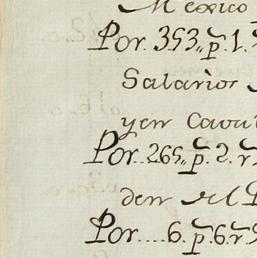 Mexico
Por. 353,, p. 1. r
Salarios
y en Caval
Por.. 265,, p. 2. r
den del P
Por.... 6. p. 6. r